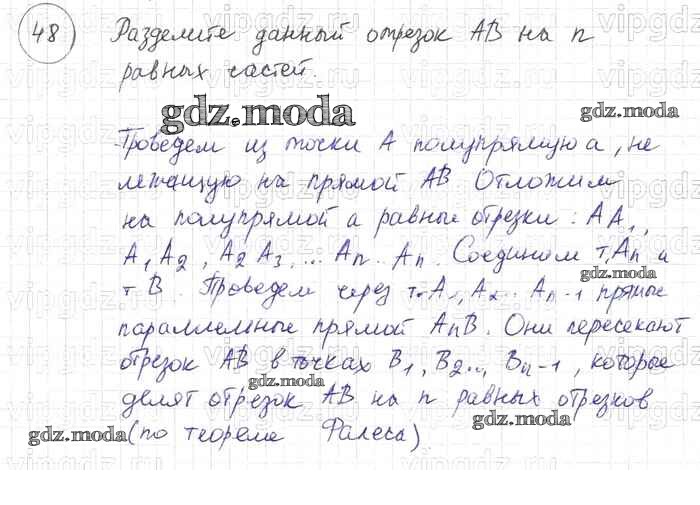 48) Разделите данный отрезок AB на n
равных частей.
gdz.moda
gdz.moda
Проведем из точки A полупрямую a, не
лежащую на прямой AB Отложим
на полупрямой a равные отрезки: AA₁,
A₁A₂, A₂A₃, ... Aₙ. Aₙ. Соединим т. Aₙ и
gdz.moda
т B. Проведем через т. A₁, A₂.. Aₙ-1 прямые
параллельные прямой AₙB. Они пересекают
отрезок AB в точках B₁, B₂.., Bₙ-1, которые
gdz.moda
делят отрезок AB на n равных отрезков
gdz.moda
(по теореме Фалеса)
gdz.moda